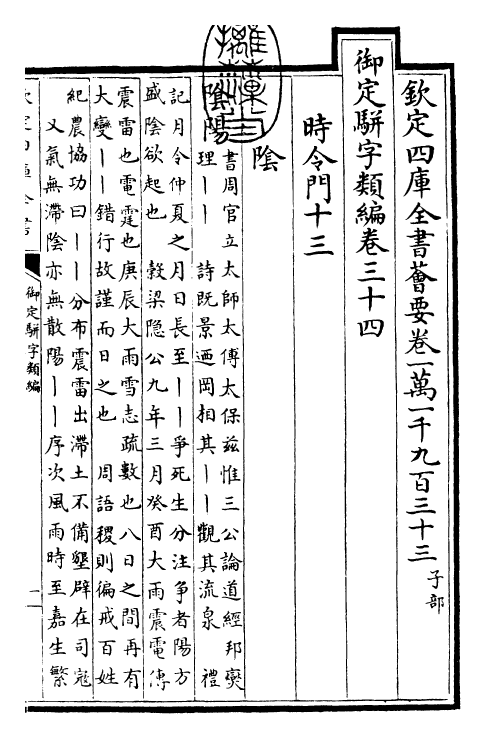 欽定四庫全書薈要卷一萬一千九百三十三 子部
御定駢字類編卷三十四
時令門十三
陰
陰陽
書周官立太師太傅太保兹惟三公論道經邦爕
理丨丨 詩既景迺岡相其丨丨觀其流泉 禮
記月令仲夏之月日長至丨丨爭死生分注争者陽方
盛陰欲起也 穀梁隐公九年三月癸酉大雨震電傳
震雷也電霆也庚辰大雨雪志疏數也八日之間再有
大變丨丨錯行故謹而日之也 周語稷則徧戒百姓
紀農協功曰丨丨分布震雷出滯土不備墾辟在司寇
又氣無滯陰亦無散陽丨丨序次風雨時至嘉生繁
御定駢字類編
一